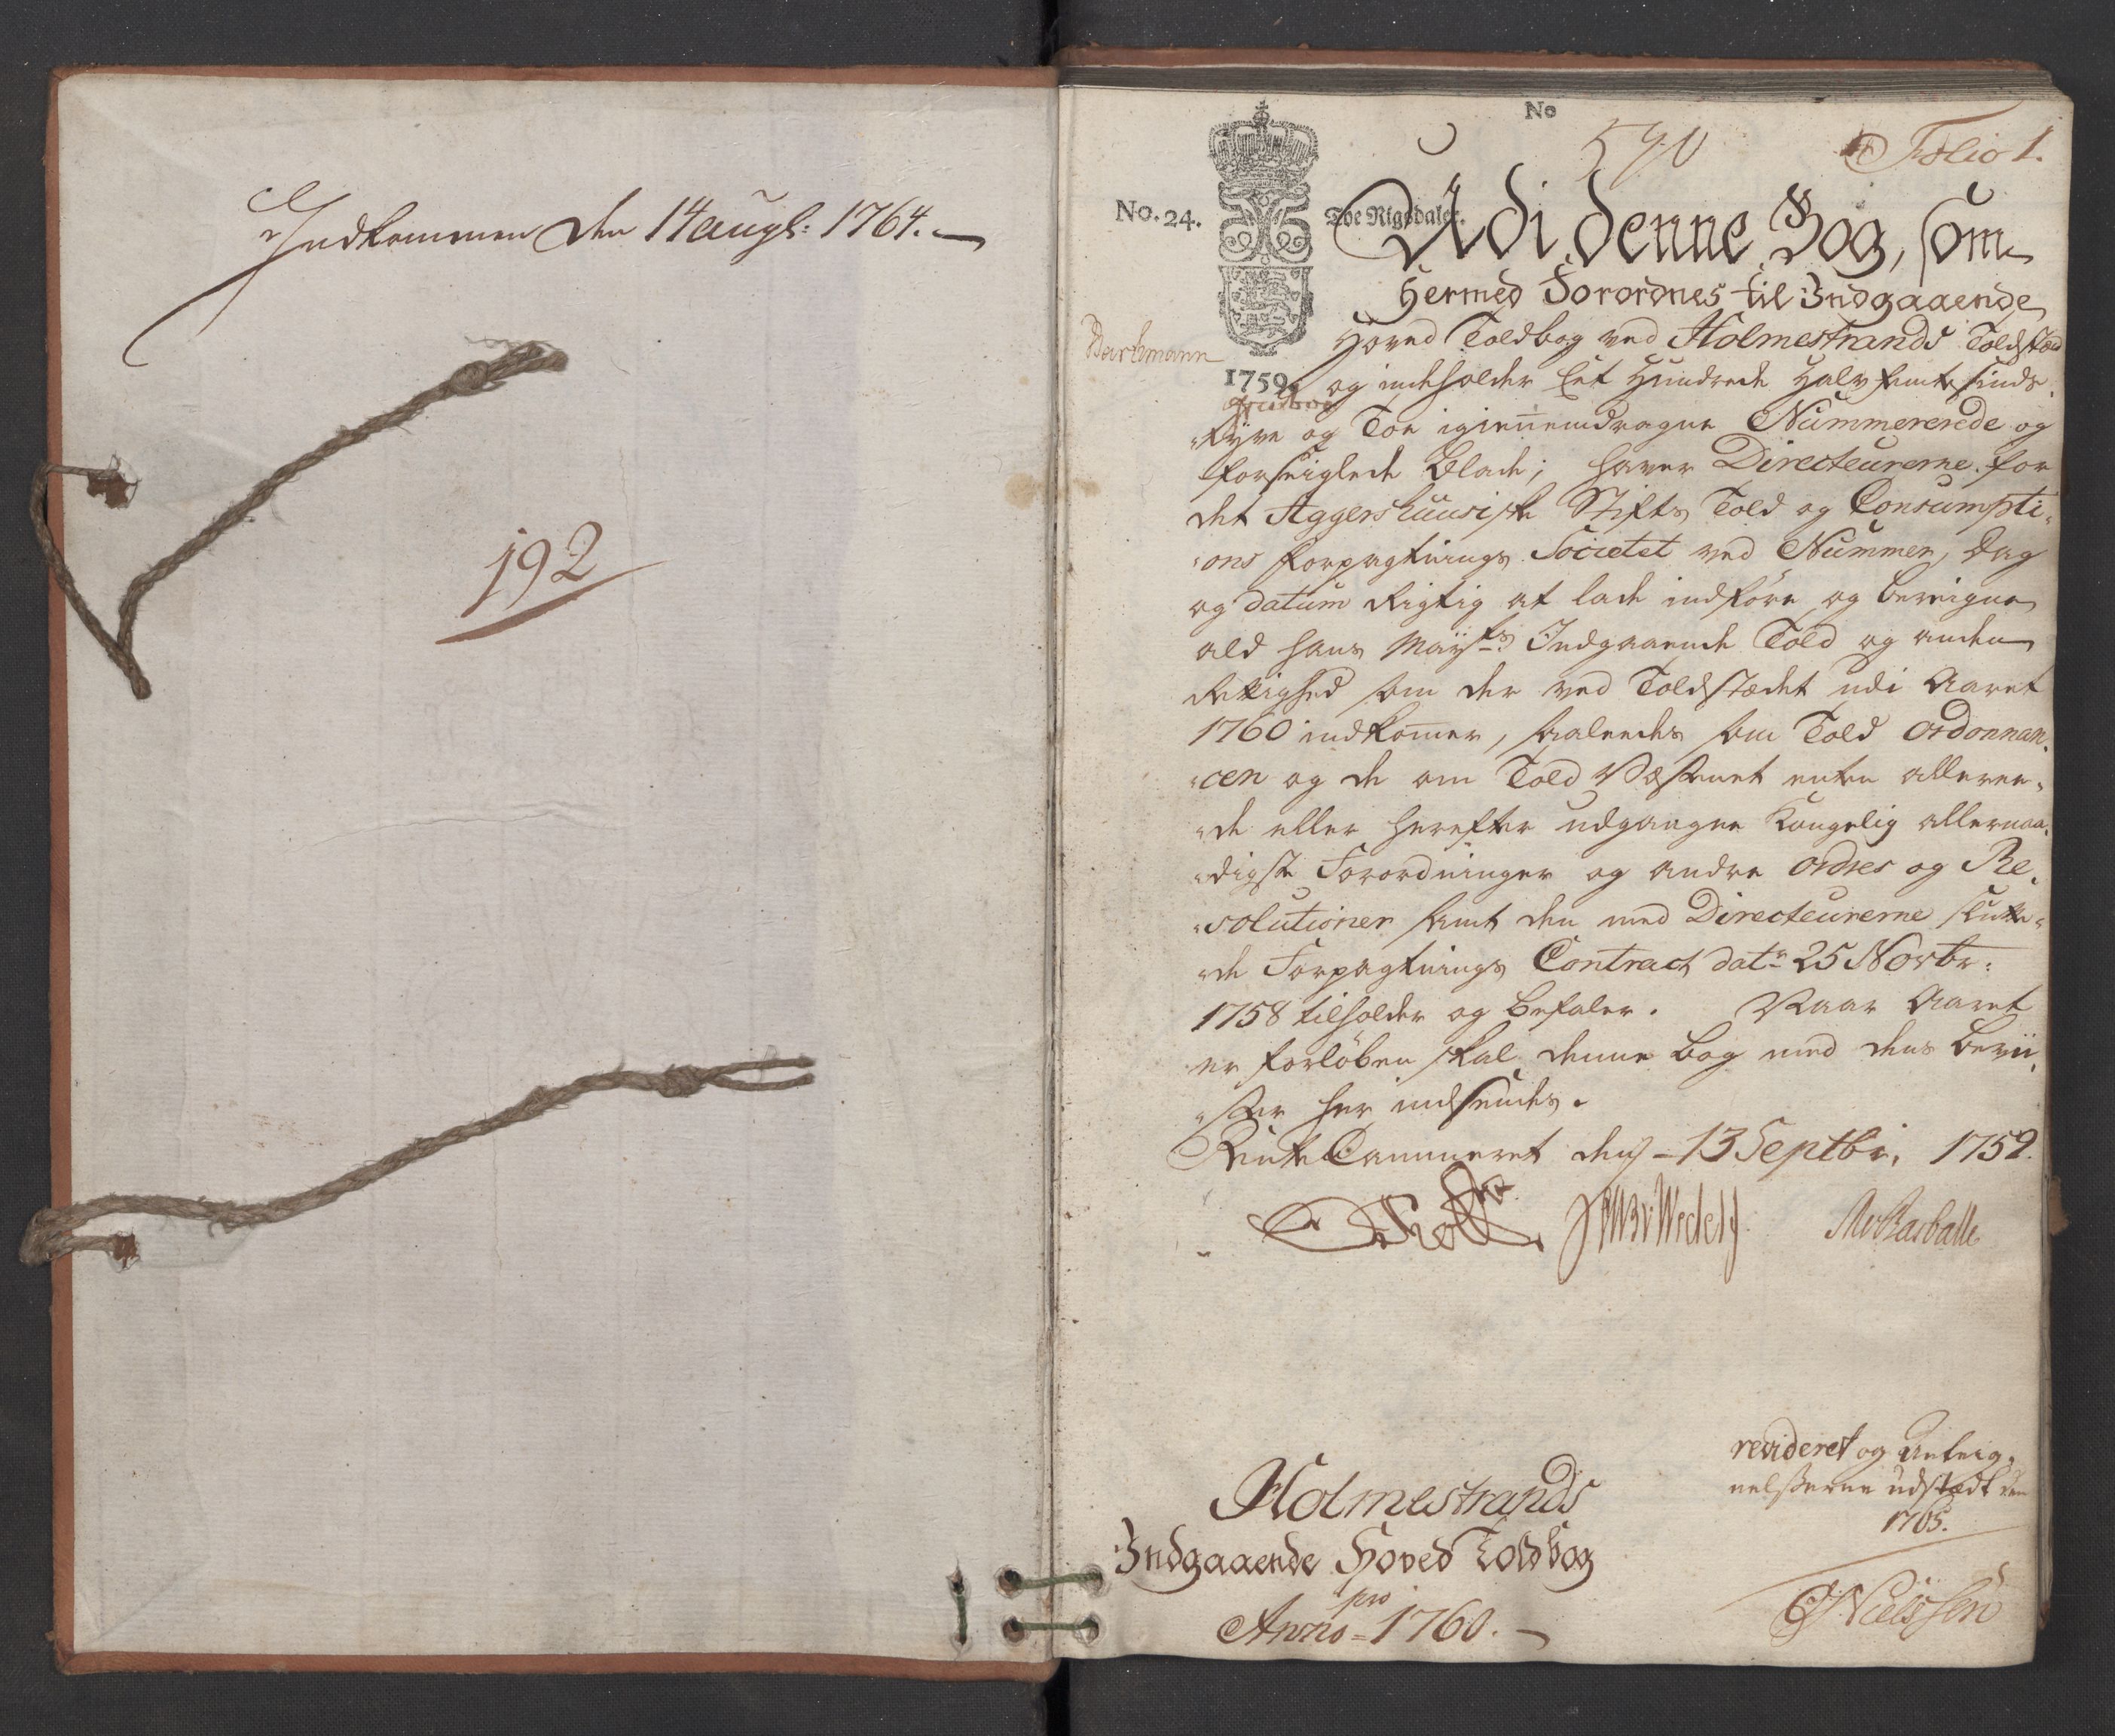 Indkommen den 14 augs: 1764.
192
No
590
Folio 1.
No. 24.
Toe Rigsdaler.
Udi denne Bog, som
Hermed Forordnes til Indgaaende
Hoved Toldbog ved Holmestrands Toldsted
Bartmann
1759.
og indeholder Eet Hundrede Halvfemtesinds
tyve og Toe igiennemdragne Nummererede og
forseiglede Blade; haver Directeurerne for
det Aggershuusiske Stifts Told og Consumpti-
ons Forpagtnings Societet ved Nummer, Dag
og datum Rigtig at lade indføre og bereigne
ald Hans Mayts Indgaaende Told og anden
Rettighed som der ved Toldstædet udi Aaret
1760 indkommer, saaledes som Told Ordonnan-
cen og de om Told Væsenet enten alleree-
de eller herefter udgangne Kongelig allernaa-
digste Forordninger og andre Ordres og Re-
solutioner samt den med Directeurerne slutte-
de Forpagtnings Contract datr 25 Novbr:
1758 tilholder og befaler. Naar Aaret
er forløben skal denne Bog med dens bevii-
ser her indsendes.
Rente Cammeret den 13 Septbr. 1759.
Holmestrands
Indgaaende Hoved Toldbog
pro
Anno 1760.
revideret og Anteig-
nelserne udstædt den
1765.
CNielssen